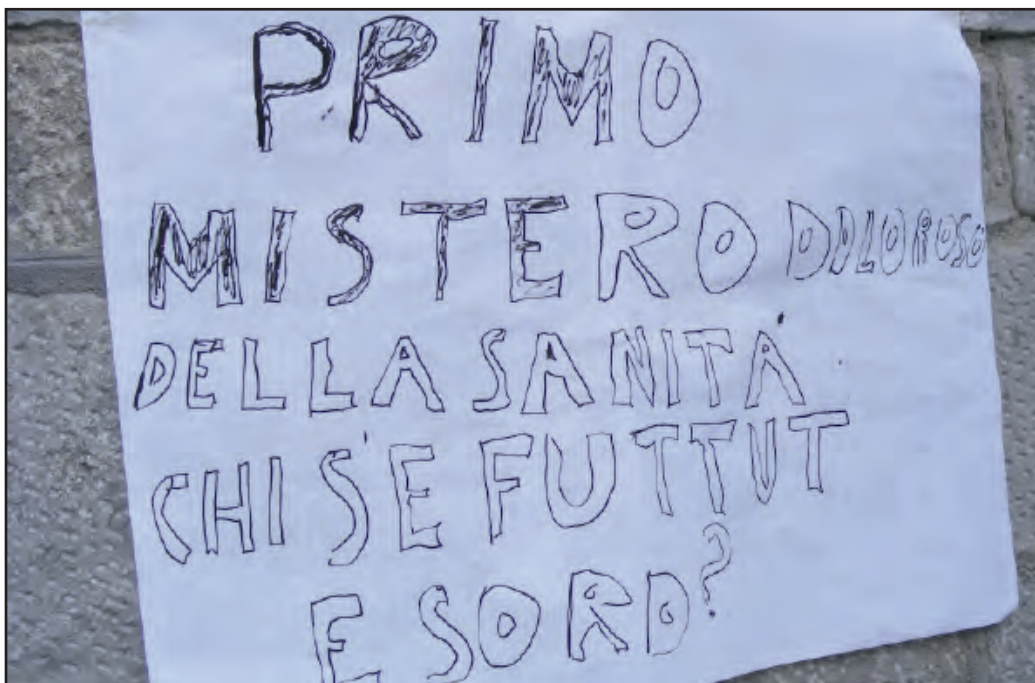 PRIMO
MISTERO DOLOROSO
DELLA SANITÀ
CHI S'E FUTTUT
E SORD?